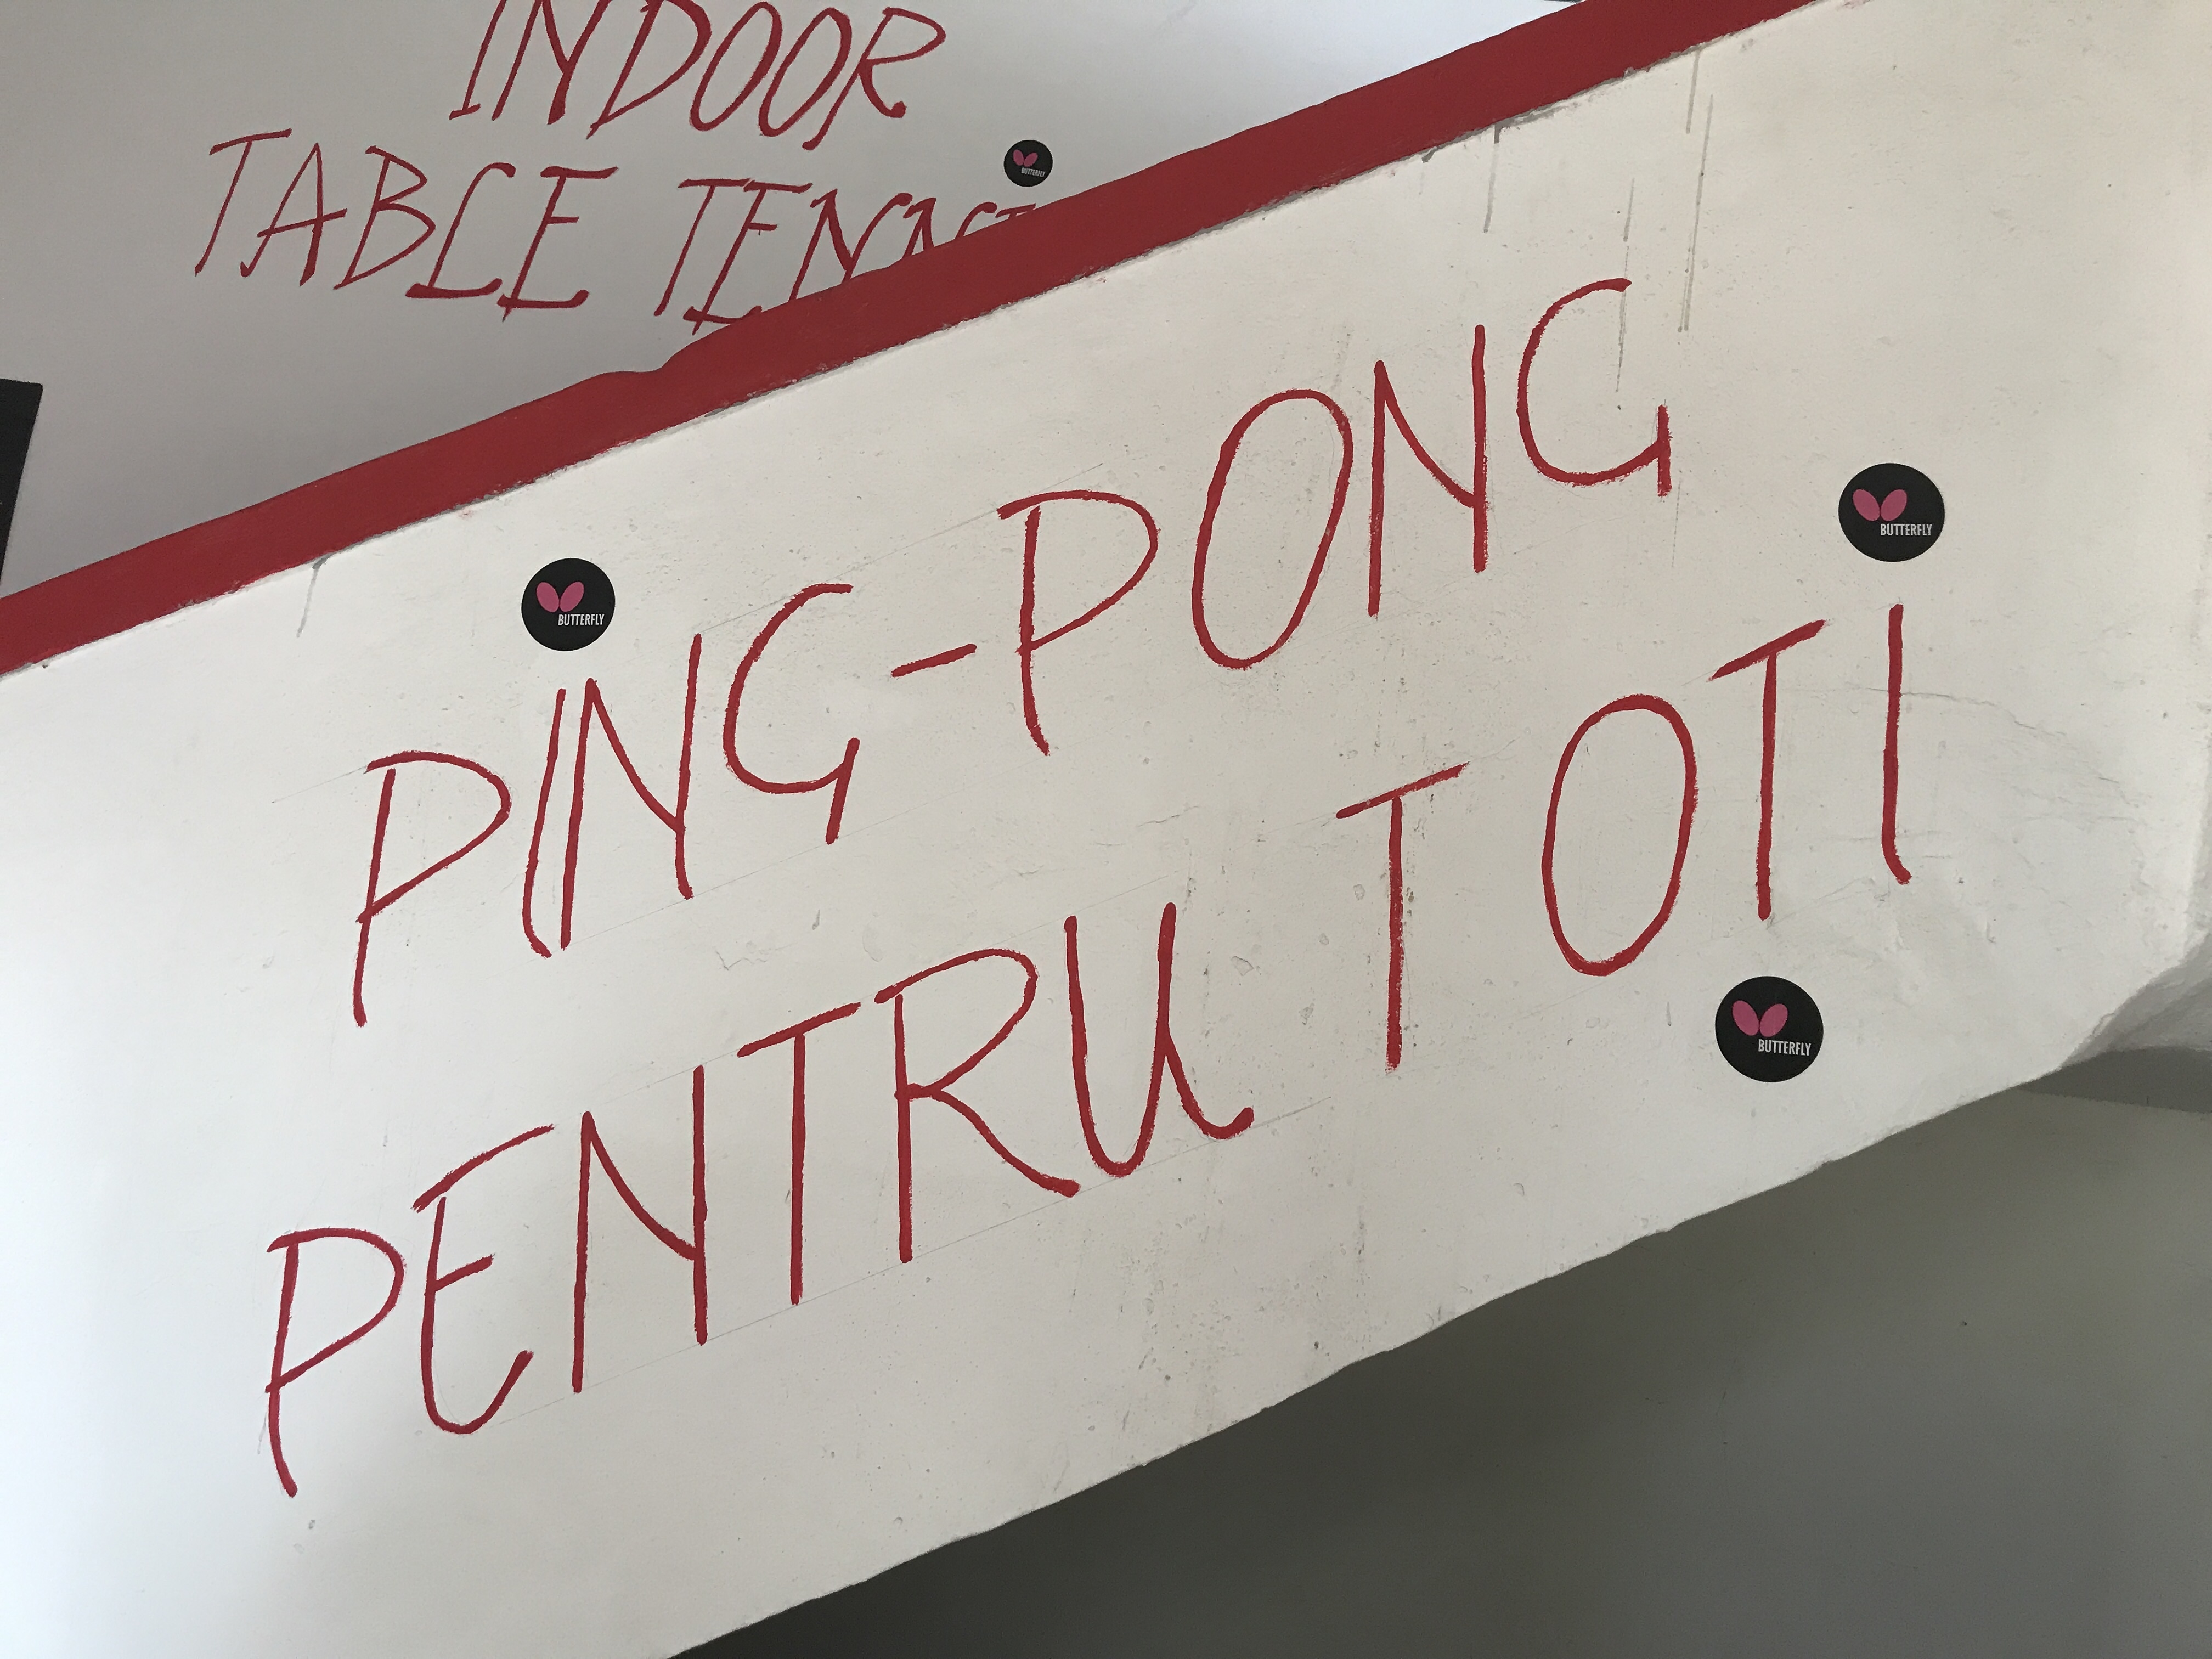 INDOOR
TABLE TENNI
BUTTERFLY
PING-PONG
PENTRU TOTI
BUTTERFLY
BUTTERFLY
BUTTERFLY